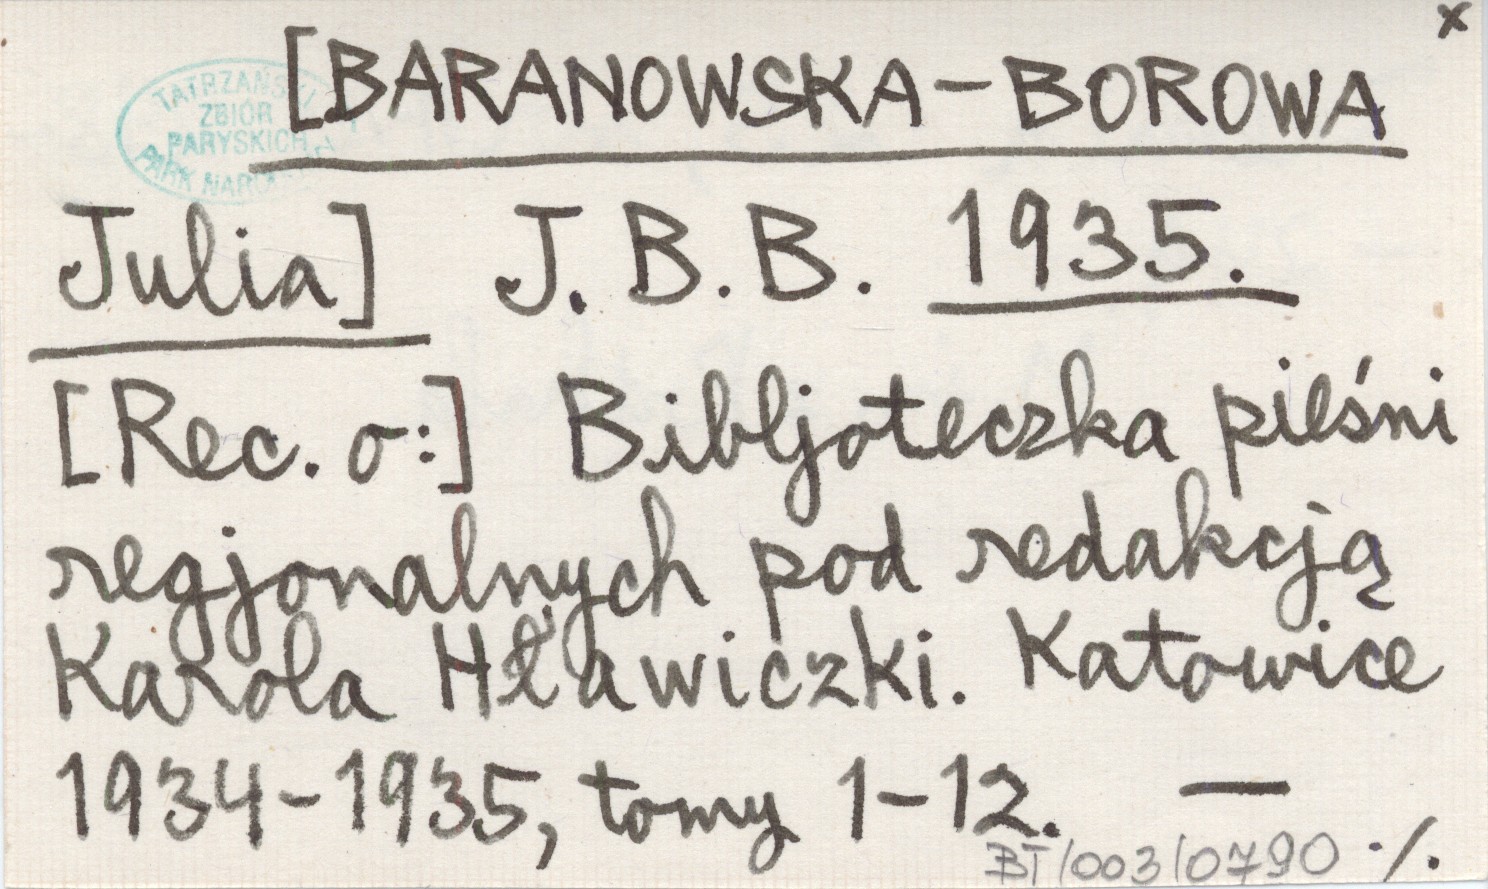 x
[BARANOWSKA-BOROWA
TATRZAŃSKI
ZBIÓR
PARYSKICH
PARK NARO
Julia] J.B.B. 1935.
[Rec. o:] Bibljoteczka pieśni
regjonalnych pod redakcją
Karola Hławiczki. Katowice
1934-1935, tomy 1-12. —
BT/003/0790 ./.